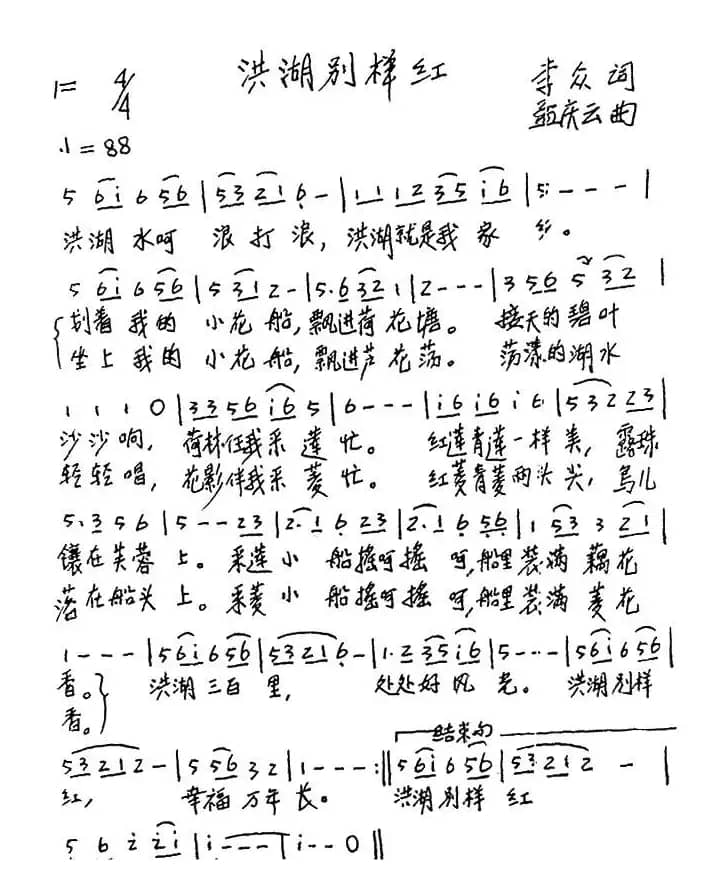 洪湖别样红
1= 4/4 李众词
♩=88 庆云曲
5 6i 6 56 | 53 21 6 - | 1 1 12 35 i6 | 5 - - - |
洪湖 水呵 浪打浪，洪湖就是我家乡。
5 6i 6 56 | 5 31 2 - | 5·6 32 1 | 2 - - - | 3 56 5 32 |
划着我的小花船，飘进荷花塘。 接天的碧叶
坐上我的小花船，飘进芦花荡。 荡漾的湖水
1 1 1 0 | 33 56 i6 5 | 6 - - - | i6 i6 i 6 | 53 2 23 |
沙沙响，荷林任我采莲忙。 红莲青莲一样美，露珠
轻轻唱，花影伴我采菱忙。 红菱青菱两头尖，鸟儿
5·3 5 6 | 5 - - 23 | 2·1 6 23 | 2·1 6 56 | 1 53 3 21 |
镶在芙蓉上。采莲小船摇呵摇呵，船里装满藕花
落在船头上。采菱小船摇呵摇呵，船里装满菱花
1 - - - | 56i 6 56 | 53 21 6 - | 1·2 35 i6 | 5 - - - | 56i 6 56 |
香。 洪湖三百里， 处处好风光。 洪湖别样
香。
53 21 2 - | 5 56 3 2 | 1 - - - :|| 结束句 56i 6 56 | 53 21 2 - |
红， 幸福万年长。 洪湖别样红
5 6 2 2i | i - - - | i - - 0 ||